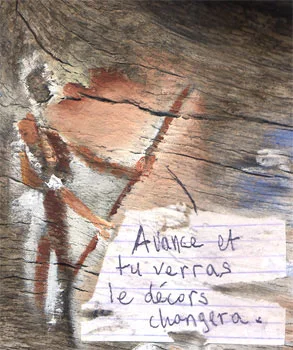 Avance et
tu verras
le décors
changera.